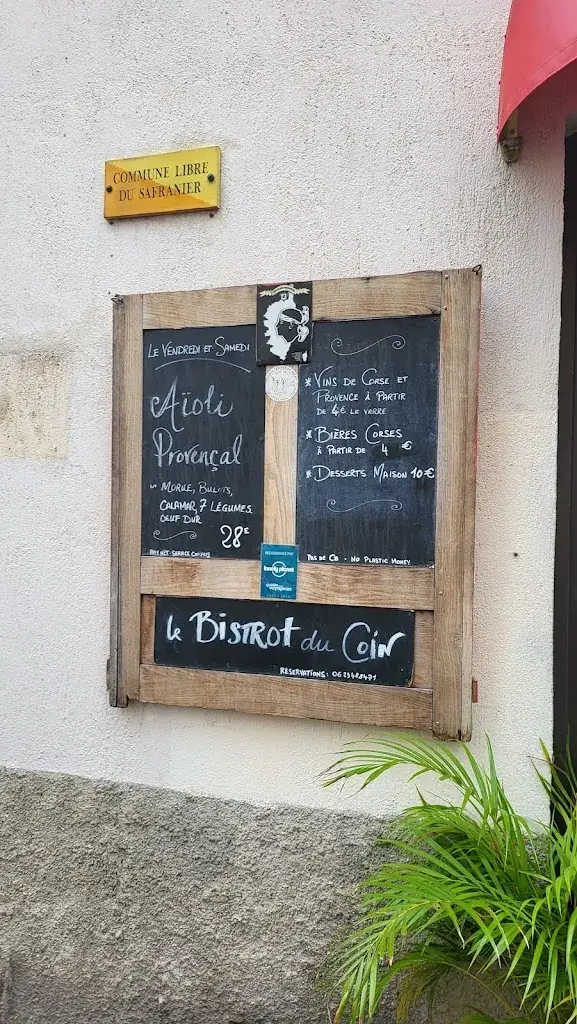 COMMUNE LIBRE
DU SAFRANIER
LE VENDREDI ET SAMEDI
Aïoli
Provençal
~ MORUE, BULOTS,
CALAMAR, 7 LÉGUMES
OEUF DUR
28€
PRIX NET - SERVICE COMPRIS
* VINS DE CORSE ET
PROVENCE À PARTIR
DE 4€ LE VERRE
* BIÈRES CORSES
À PARTIR DE 4 €
* DESSERTS MAISON 10€
PAS DE CB - NO PLASTIC MONEY
RECOMMANDÉ PAR
lonely planet
le BISTROT du COIN
RESERVATIONS: